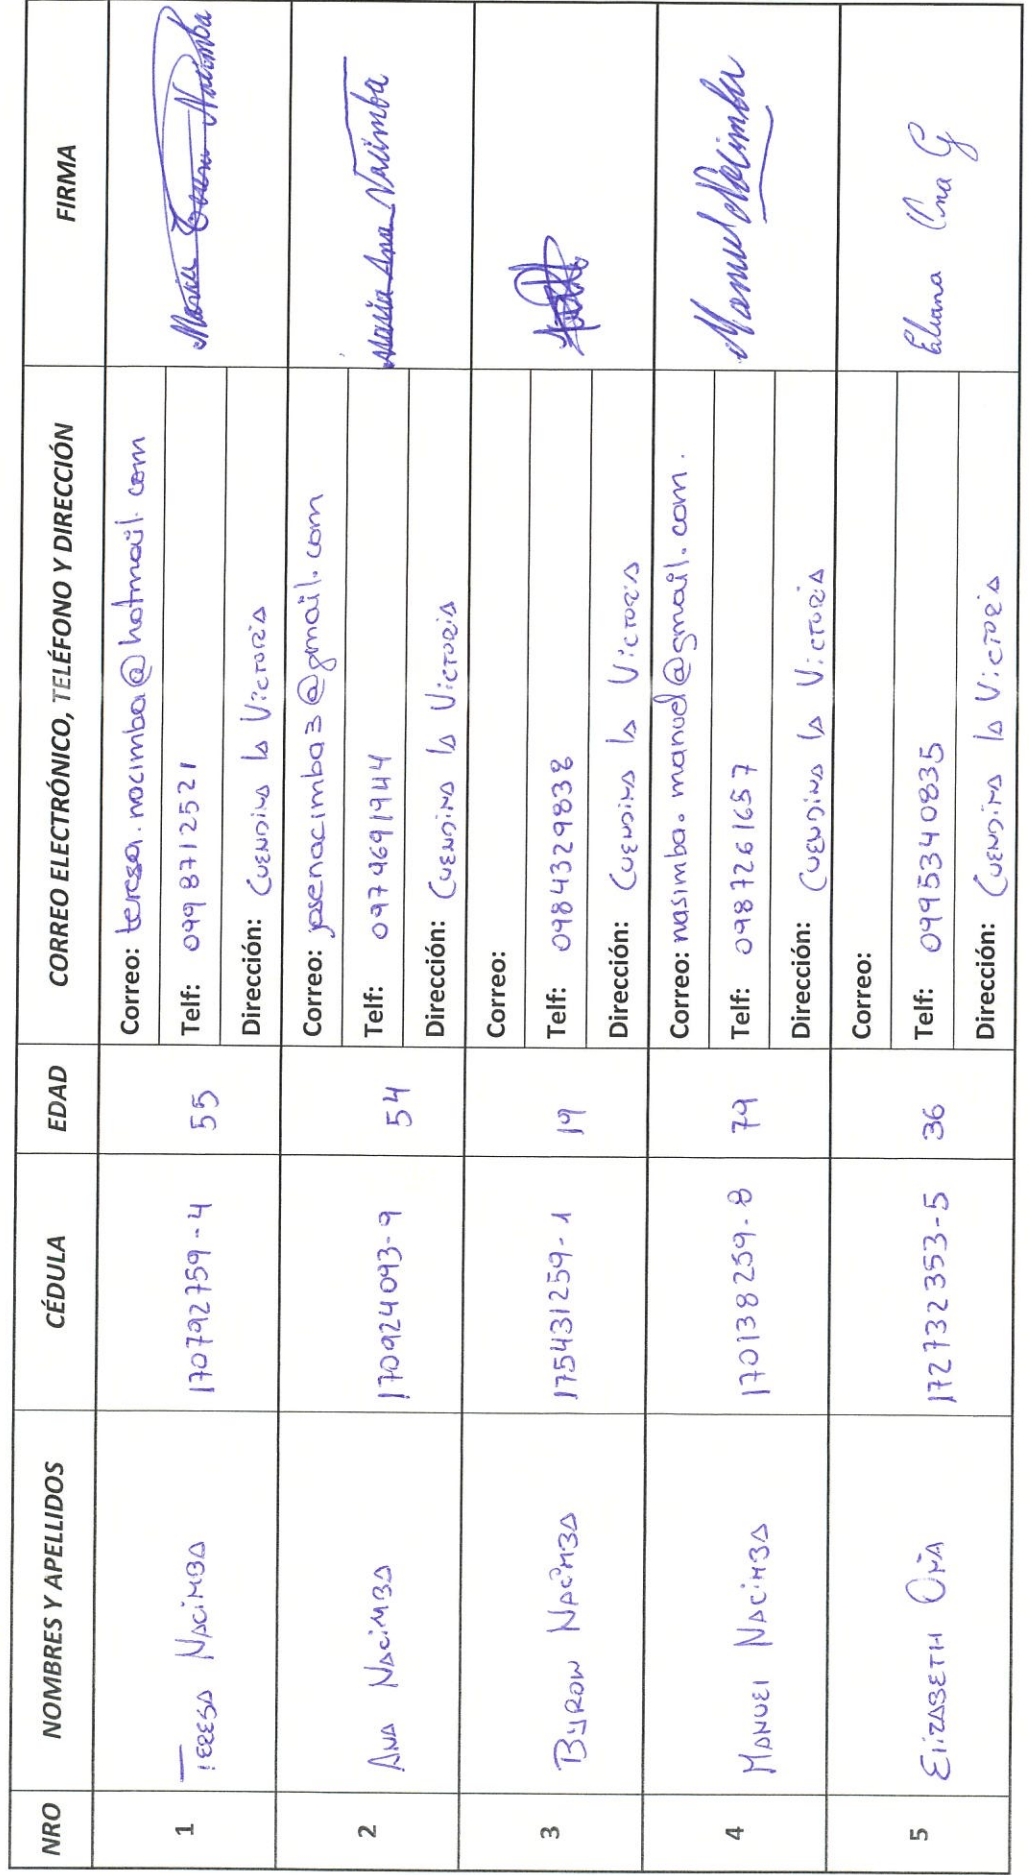 NRO NOMBRES Y APELLIDOS CÉDULA EDAD CORREO ELECTRÓNICO, TELÉFONO Y DIRECCIÓN FIRMA
1 TERESA NACIMBA 170792759-4 55
Correo: teresa.nacimba@hotmail.com
Telf: 0998712521
Dirección: CUENDINA LA VICTORIA
Nacimba
2 ANA NACIMBA 170924093-9 54
Correo: josenacimba3@gmail.com
Telf: 0974691944
Dirección: CUENDINA LA VICTORIA
Maria Ana Nacimba
3 BYRON NACIMBA 175431259-1 19
Correo:
Telf: 0984329838
Dirección: CUENDINA LA VICTORIA
4 MANUEL NACIMBA 170138259-8 79
Correo: nasimba.manuel@gmail.com.
Telf: 0987261657
Dirección: CUENDINA LA VICTORIA
Manuel Nacimba
5 ELIZABETH OÑA 172732353-5 36
Correo:
Telf: 0995340835
Dirección: CUENDINA LA VICTORIA
Eliana Ona G